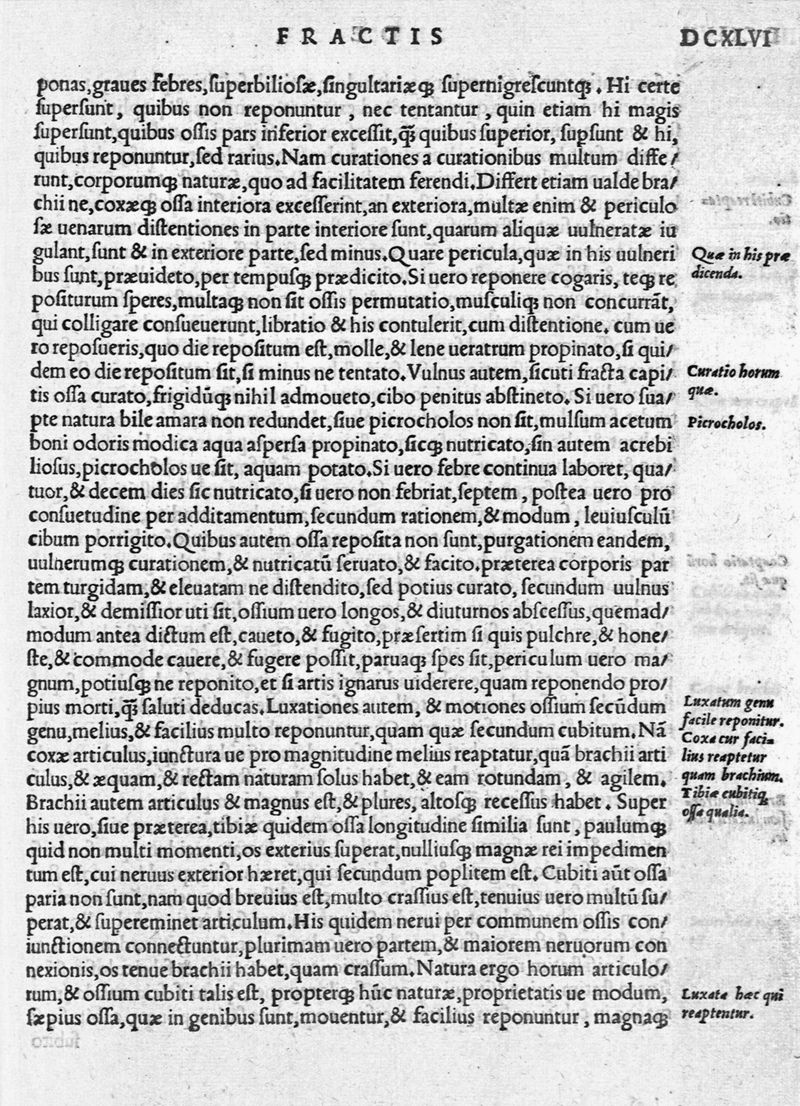 FRACTIS
DCXLVI
ponas,graues febres,ſuperbilioſæ,ſingultariæq; ſupernigreſcuntq; . Hi certe
ſuperſunt, quibus non reponuntur , nec tentantur , quin etiam hi magis
ſuperſunt,quibus oſſis pars inferior exceſſit,q̃ quibus ſuperior, ſupſunt & hi,
quibus reponuntur,ſed rarius.Nam curationes a curationibus multum diffe/
runt,corporumq; naturæ,quo ad facilitatem ferendi.Differt etiam ualde bra/
chii ne,coxæq; oſſa interiora exceſſerint,an exteriora,multæ enim & periculo
ſæ uenarum diſtentiones in parte interiore ſunt,quarum aliquæ uulneratæ iu
gulant,ſunt & in exteriore parte,ſed minus.Quare pericula,quæ in his uulneri
bus ſunt,præuideto,per tempuſq; prædicito.Si uero reponere cogaris, teq; re
poſiturum ſperes,multaq; non ſit oſſis permutatio,muſculiq; non concurrãt,
qui colligare conſueuerunt,libratio & his contulerit,cum diſtentione. cum ue
ro repoſueris,quo die repoſitum eſt,molle,& lene ueratrum propinato,ſi qui/
dem eo die repoſitum ſit,ſi minus ne tentato.Vulnus autem,ſicuti fracta capi/
tis oſſa curato,frigidũq; nihil admoueto,cibo penitus abſtineto. Si uero ſua/
pte natura bile amara non redundet,ſiue picrocholos non ſit,mulſum acetum
boni odoris modica aqua aſperſa propinato,ſicq; nutricato,ſin autem acrebi
lioſus,picrocholos ue ſit, aquam potato.Si uero febre continua laboret, qua/
tuor,& decem dies ſic nutricato,ſi uero non febriat,ſeptem , poſtea uero pro
conſuetudine per additamentum,ſecundum rationem,& modum , leuiuſculũ
cibum porrigito.Quibus autem oſſa repoſita non ſunt,purgationem eandem,
uulnerumq; curationem,& nutricatũ ſeruato,& facito.præterea corporis par
tem turgidam,& eleuatam ne diſtendito,ſed potius curato, ſecundum uulnus
laxior,& demiſſior uti ſit,oſſium uero longos,& diuturnos abſceſſus,quemad/
modum antea dictum eſt,caueto,& fugito,præſertim ſi quis pulchre,& hone/
ſte,& commode cauere,& fugere poſſit,paruaq; ſpes ſit,periculum uero ma/
gnum,potiuſq; ne reponito,et ſi artis ignarus uiderere,quam reponendo pro/
pius morti,q̃ ſaluti deducas.Luxationes autem, & motiones oſſium ſecũdum
genu,melius,& facilius multo reponuntur,quam quæ ſecundum cubitum. Nã
coxæ articulus,iunctura ue pro magnitudine melius reaptatur,quã brachii arti
culus,& æquam,& rectam naturam ſolus habet,& eam rotundam , & agilem.
Brachii autem articulus & magnus eſt,& plures, altoſq; receſſus habet . Super
his uero,ſiue præterea,tibiæ quidem oſſa longitudine ſimilia ſunt, paulumq;
quid non multi momenti,os exterius ſuperat,nulliuſq; magnæ rei impedimen
tum eſt,cui neruus exterior hæret,qui ſecundum poplitem eſt. Cubiti aũt oſſa
paria non ſunt,nam quod breuius eſt,multo craſſius eſt,tenuius uero multũ ſu/
perat,& ſupereminet articulum.His quidem nerui per communem oſſis con/
iunctionem connectuntur,plurimam uero partem,& maiorem neruorum con
nexionis,os tenue brachii habet,quam craſſum. Natura ergo horum articulo/
rum,& oſſium cubiti talis eſt, propterq; hũc naturæ,proprietatis ue modum,
ſæpius oſſa,quæ in genibus ſunt,mouentur,& facilius reponuntur , magnaq;
Quæ in his præ
dicenda.
Curatio horum
quæ.
Picrocholos.
Luxatum genu
facile reponitur.
Coxa cur faci=
lius reaptetur
quam brachium.
Tibiæ cubitiq;
oſſa qualia.
Luxata hæc qui
reaptentur.